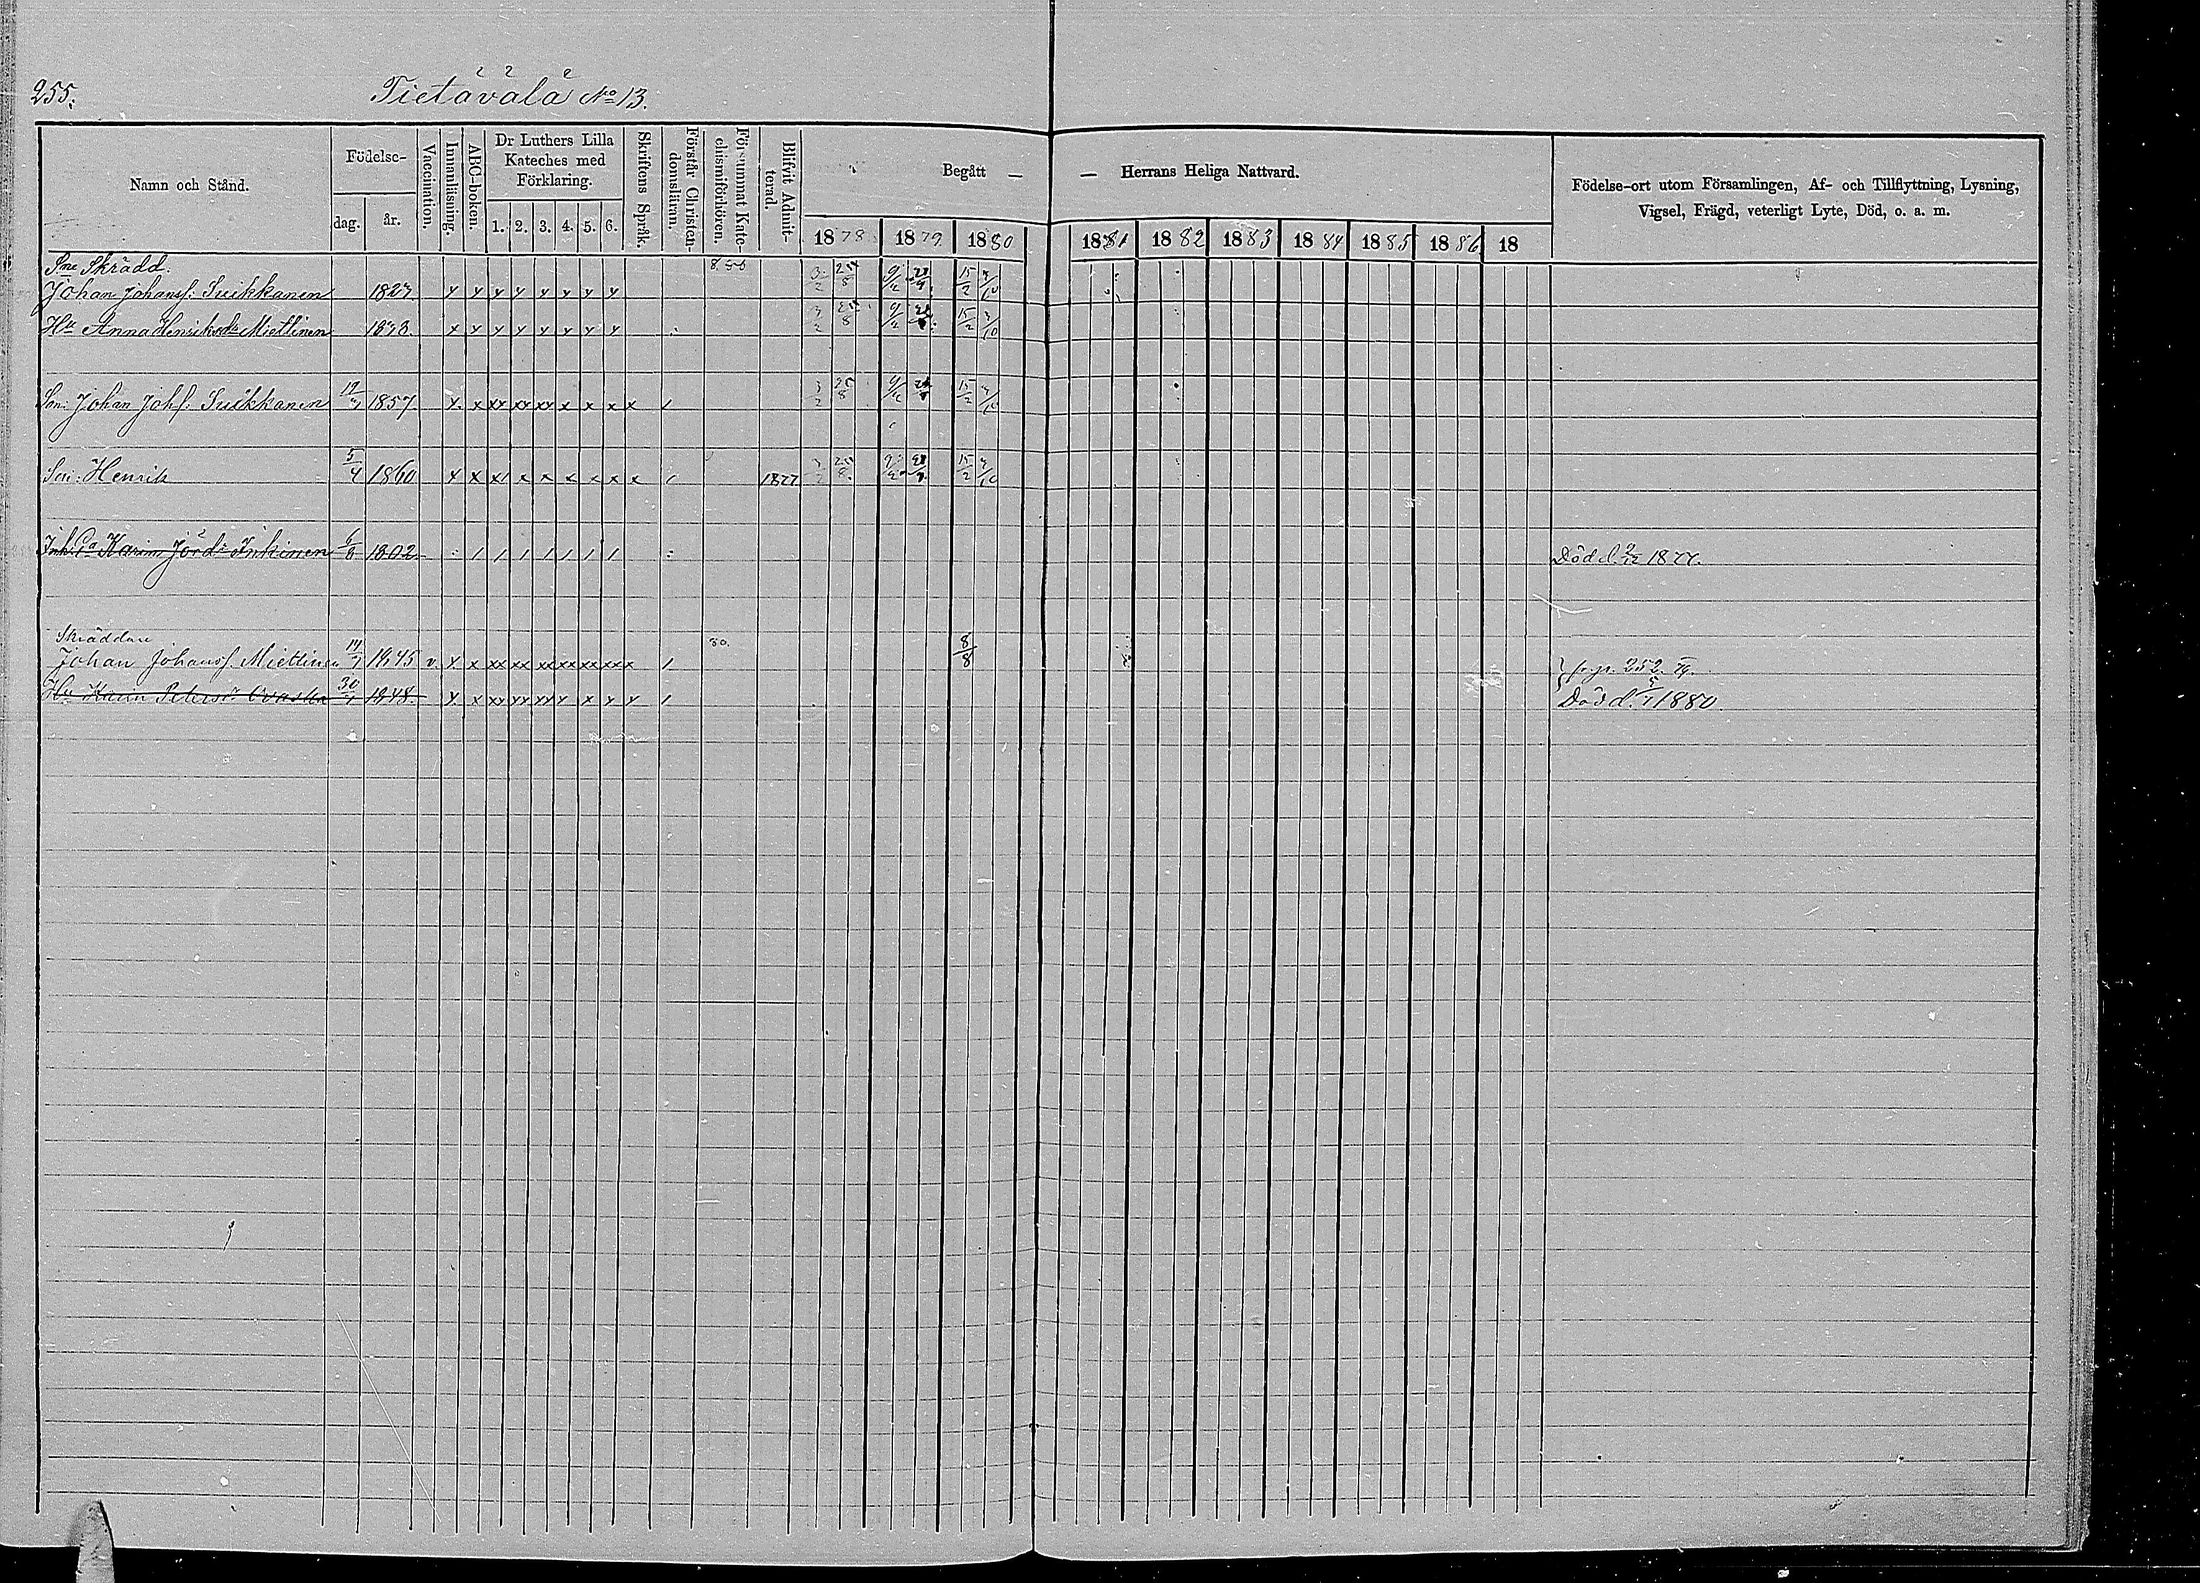 255.
Tietävälä No 13.
Namn och Stånd.
Födelse-
dag.
år.
Vaccination.
Innanläsning.
ABC-boken.
Dr Luthers Lilla
Kateches med
Förklaring.
1. 2. 3. 4. 5. 6.
Skriftens Språk.
Förstår Christen-
domsläran.
Försummat Kate-
chismiförhören.
Blifvit Admit-
terad.
Begått — — Herrans Heliga Nattvard.
1878 1879 1880 1881 1882 1883 1884 1885 1886 18
Födelse-ort utom Församlingen, Af- och Tillflyttning, Lysning,
Vigsel, Frägd, veterligt Lyte, Död, o. a. m.
Skrädd.
Johan Johanss: Suikkanen 1827 y y y y y y y y 3/2 25/8 9/2 15/2
Hu Anna Henriksdr Miettinen y y y y y y y y 3/2 25/8 9/2 15/2
Son: Johan Johs: Suikkanen 1857 x x xx xx xx x x x x / 3/2 25/8 15/2
Son: Henrik 5/4 1860 x x x x x x x x 1877 25/8 15/2
Karin Jör.d: Inkinen 6/8 1802 / / / / / / / Död d. 2/12 1877.
Skräddare
Johan Johanss. Miettinen 1845 v. x x xx xx xx xx xx xx x / 80. 8/8 fr. p. 252
Hu Karin Petersdr Ovaska 1848 y x xy yy xy y x y y / Död d. 1880.